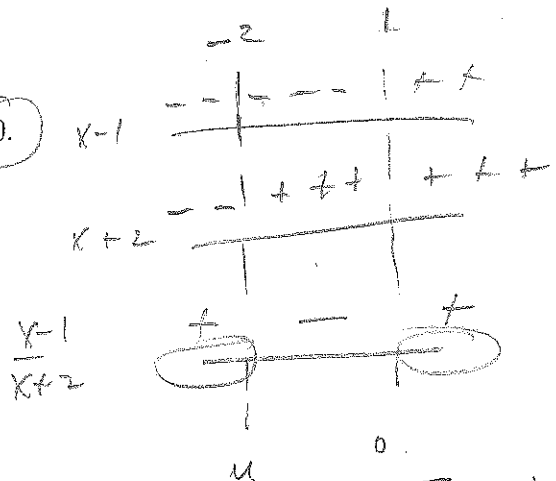 -2 1
0.
x-1 - - - - - + +
x+2 - - + + + + + +
x-1
x+2 + - +
u 0